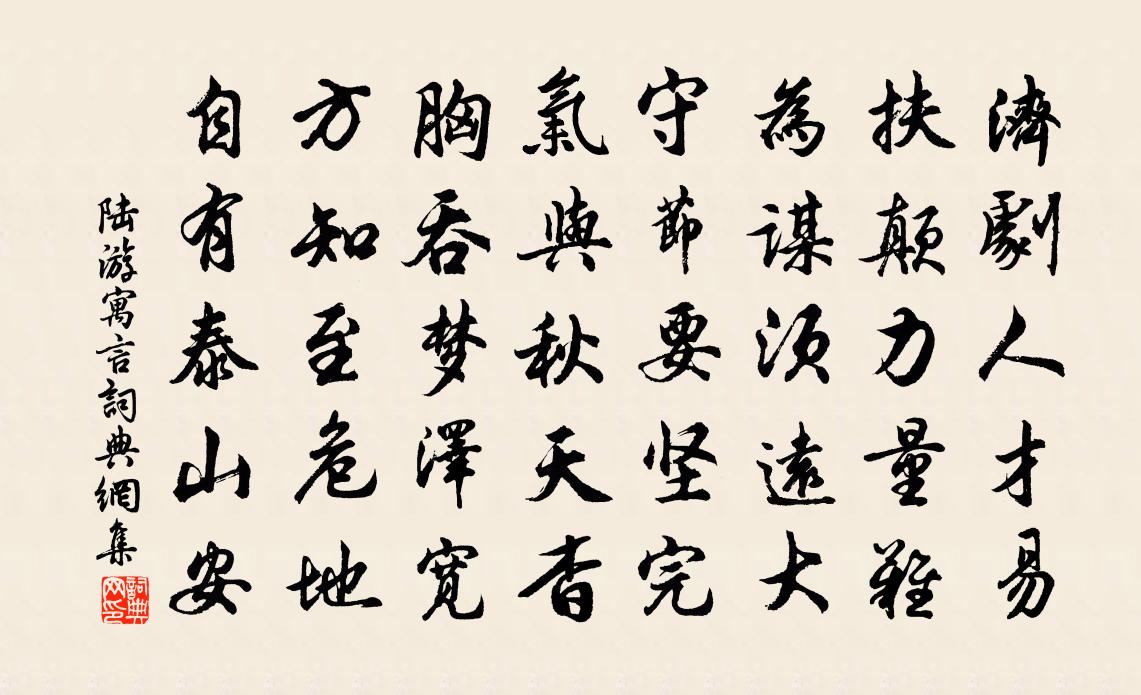 濟劇人才易
扶颠力量難
為謀須遠大
守節要坚完
氣與秋天杳
胸吞梦澤寬
方知至危地
自有泰山安
陆游寓言詞典網集
詞典网印